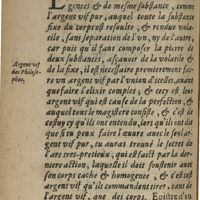 gences & de mesme substance, comme
l'argent vif pur, auquel toute la substance
fixe du corps est resoulte, & rendue vola-
tile, sans separation de l'vn, ny de l'autre,
car puis qu'il faut composer la pierre de
deux substances, asçauoir de la volatile &
de la fixe, il est necessaire premierement fai-
re vn argent vif par l'vnion d'icelles, auant
que faire l'elixir complet, & cecy est leur
argent vif qui est cause de la perfection, &
auquel tout le magistere consiste, & c'est de
cestuy cy qu'ils ont entendu, lors qu'ils ont dit
que si tu peux faire l'œuure auec le seul ar-
gent vif pur, tu auras trouué le secret de
l'art tres-precieux, qui est faict par la der-
niere action, laquelle il doit soustenir auec
son corps cache & homogenée, & c'est ce
argent vif qu'ils commandent tirer, tant de
l'argent vif, que des corps.
Argent vif
des Philoso-
phes.